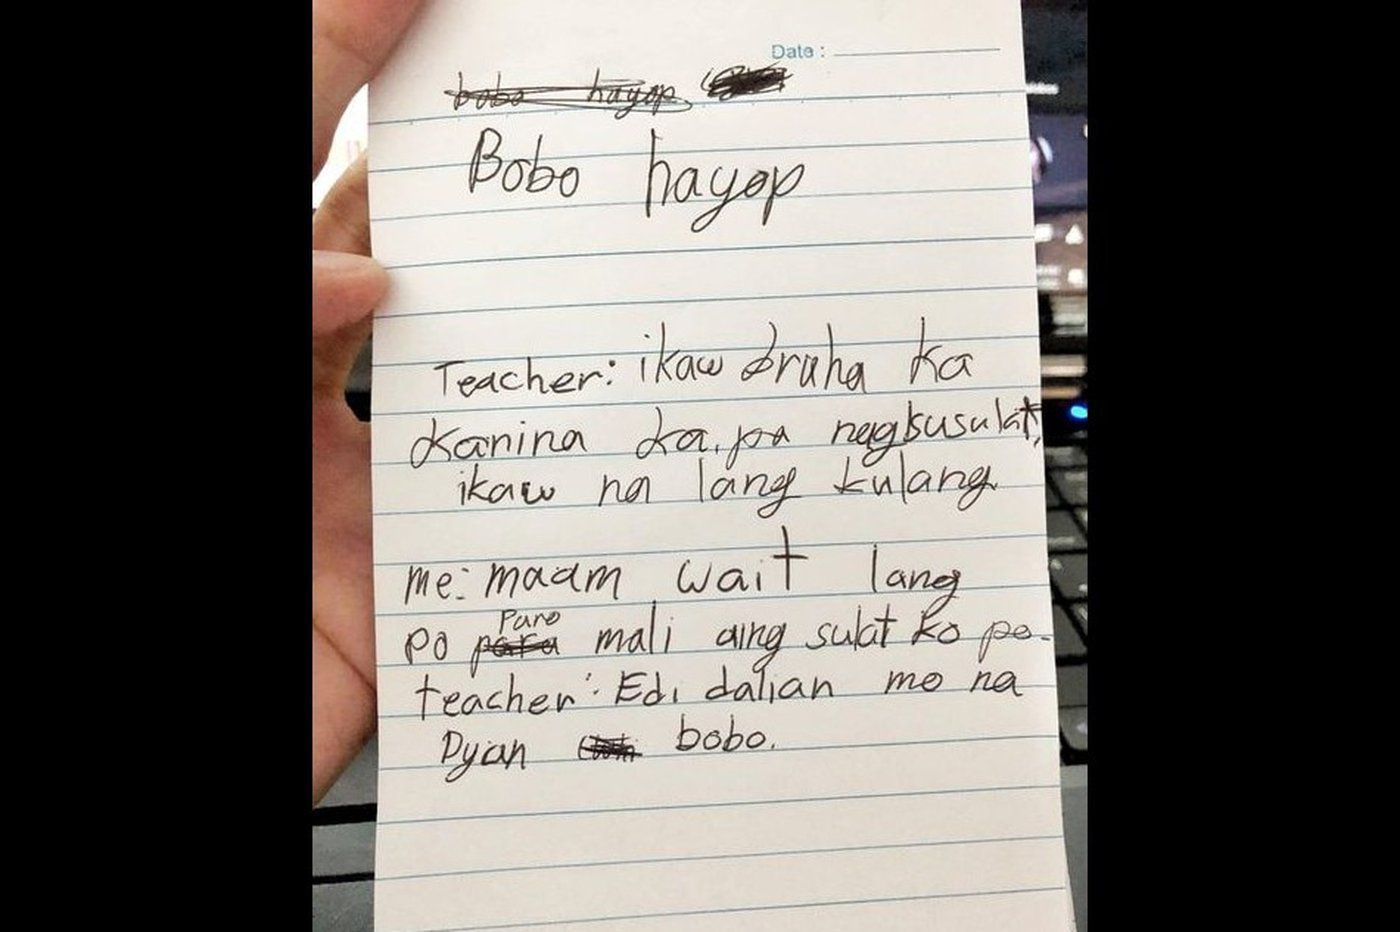 Date :
bobo hayop
Bobo hayop
Teacher: ikaw bruha ka
kanina ka pa nagsusulat,
ikaw na lang kulang.
me: maam wait lang
Paro
po para mali aing sulat ko po.
teacher: Edi dalian mo na
Dyan bobo.